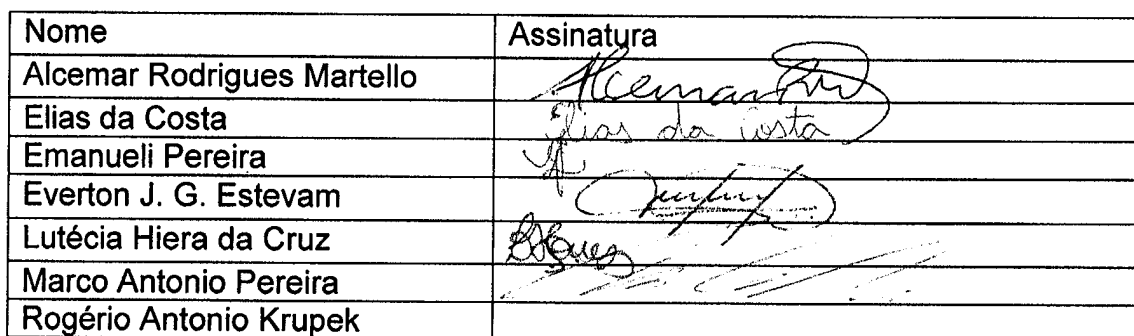 Nome Assinatura
Alcemar Rodrigues Martello Alcemar
Elias da Costa Elias da Costa
Emanueli Pereira
Everton J. G. Estevam
Lutécia Hiera da Cruz
Marco Antonio Pereira
Rogério Antonio Krupek